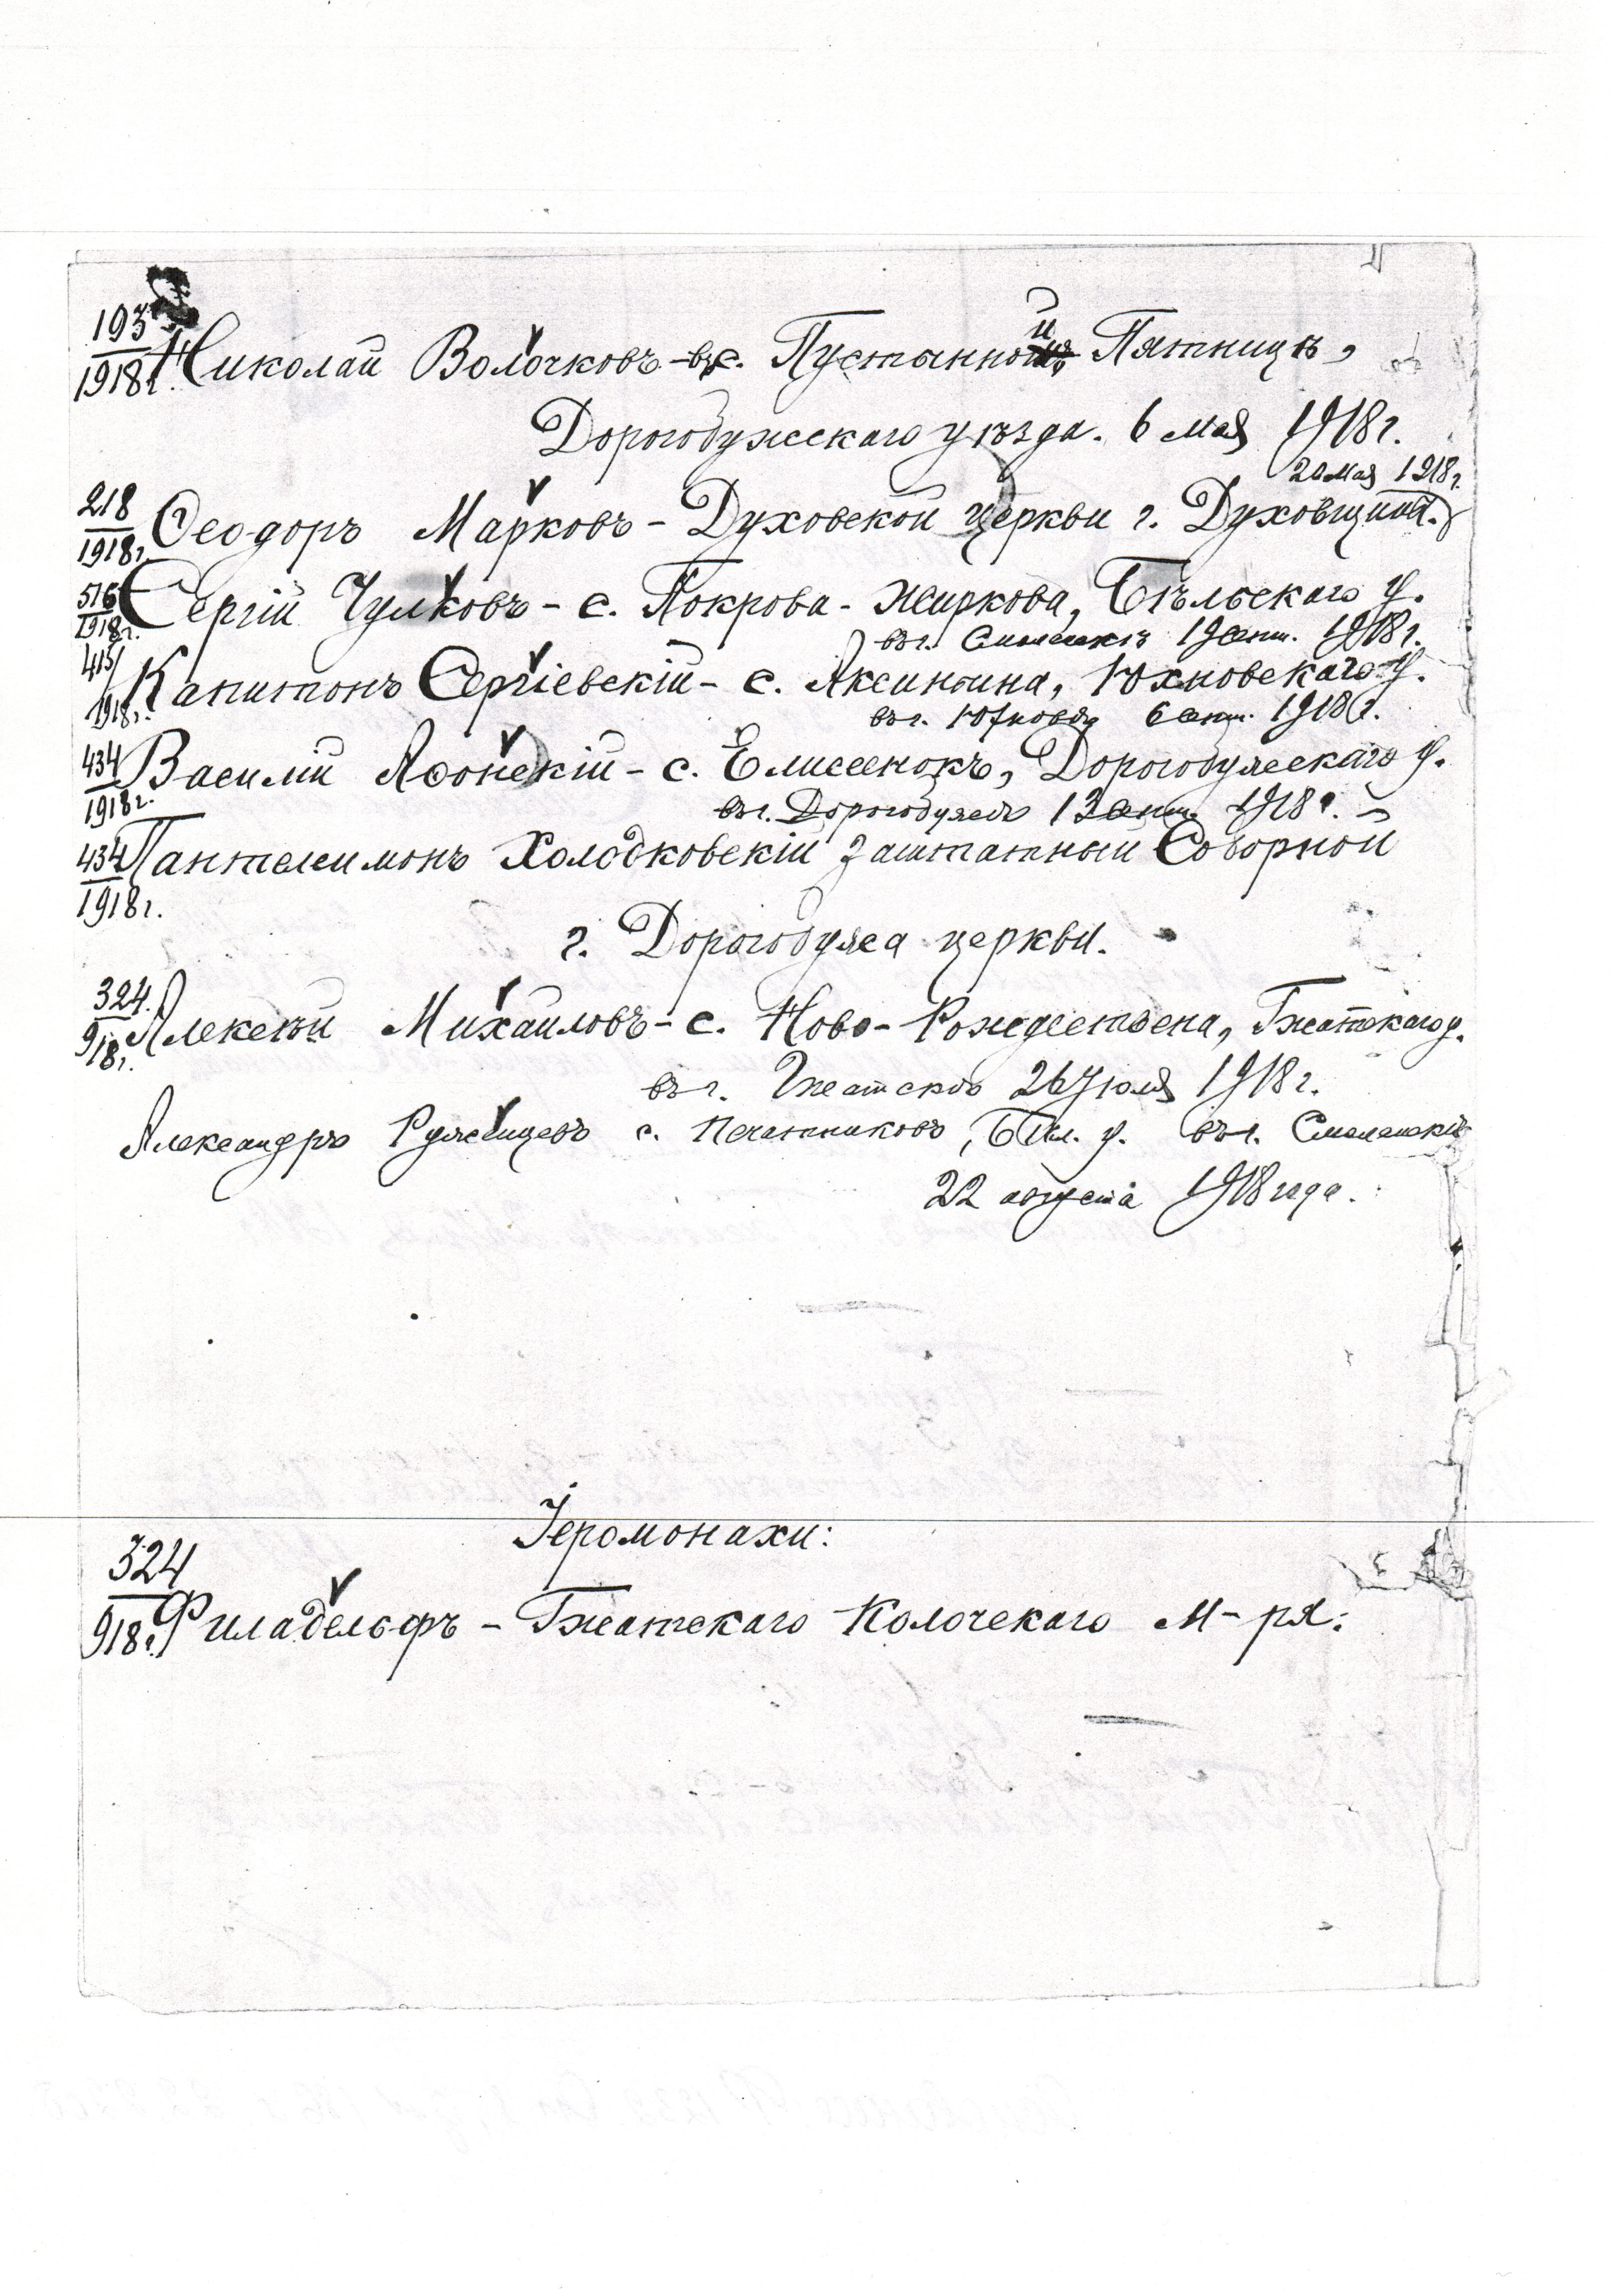 193
1918 г. Николай Волочковъ - въ с. Пустынной Пятницѣ,
Дорогобужскаго уѣзда. 6 мая 1918 г.
20 мая 1918 г.
218
1918 г. Ѳеодоръ Марковъ - Духовской церкви г. Духовщины.
516
1918 г. Сергій Чулковъ - с. Покрова-Жиркова, Бѣльскаго у.
въ г. Смоленскѣ 19 сент. 1918 г.
415
1918 г. Капитонъ Сергіевскій - с. Аксиньина, Юхновскаго у.
въ г. Юхновѣ 6 сент. 1918 г.
434
1918 г. Василій Аѳонскій - с. Елисеенокъ, Дорогобужскаго у.
въ г. Дорогобужѣ 13 сент. 1918 г.
434
1918 г. Пантелеимонъ Холодковскій заштатный Соборной
г. Дорогобужа церкви.
324
918 г. Алексѣй Михайловъ - с. Ново-Рождествена, Гжатскаго у.
въ г. Гжатскѣ 26 Іюля 1918 г.
Александръ Ружевцевъ с. Печатниковъ, Бѣл. у. въ г. Смоленскѣ
22 августа 1918 года.
Іеромонахи:
324
918 г. Филадельфъ - Гжатскаго Колочскаго М-ря.